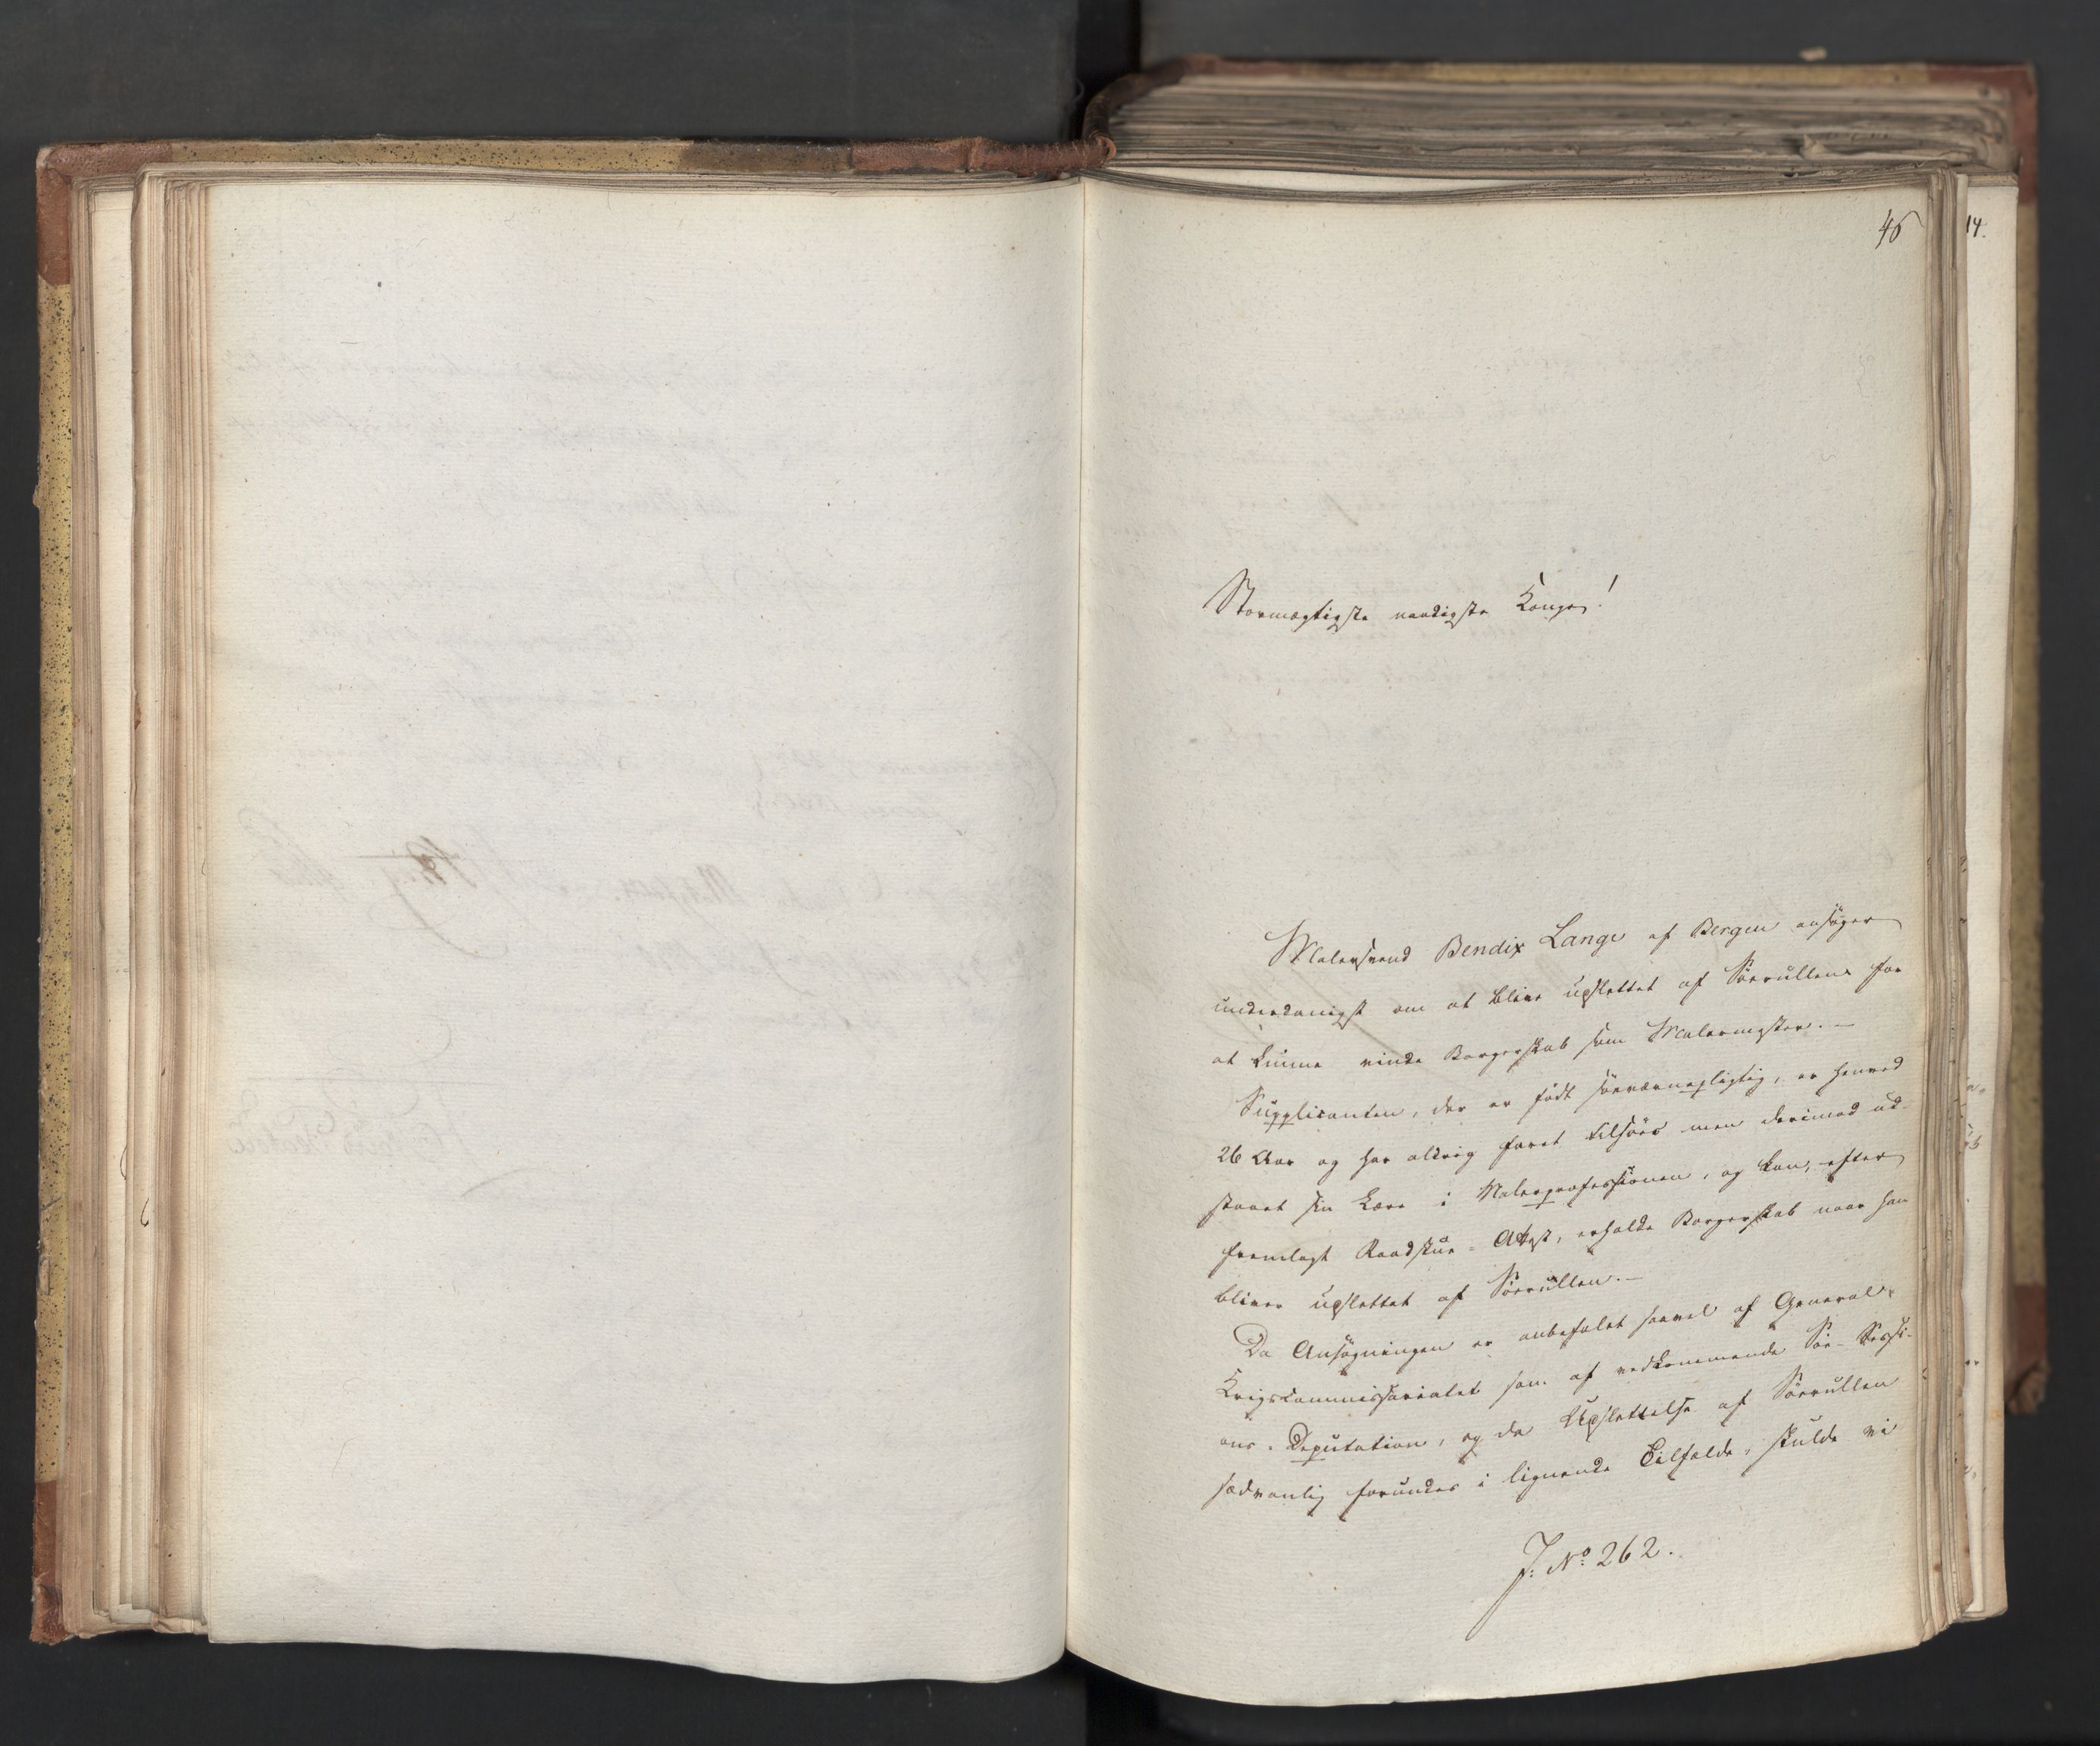 46
14.
Stormægtigste naadigste Konge!
Malersvend Bendix Lange af Bergen ansøger
underdanigst om at blive udslettet af Søerullen for
at kunne vinde Borgerskab som Malermester. —
Supplicanten, der er født søeværnepligtig, er henved
26 Aar og har aldrig faret tilsøes men derimod ud-
staaet sin Lære i Malerprofessionen, og kan, efter
fremlagt Raadstue-Attest, erholde Borgerskab naar han
bliver udslettet af Søerullen. —
Da Ansøgningen er anbefalet saavel af General-
Krigscommissariatet som af vedkommende Søe-Sessi-
ons-Deputation, og da Udslettelse af Søerullen
sædvanlig forundes i lignende Tilfælde, skulde vi
J: No. 262.